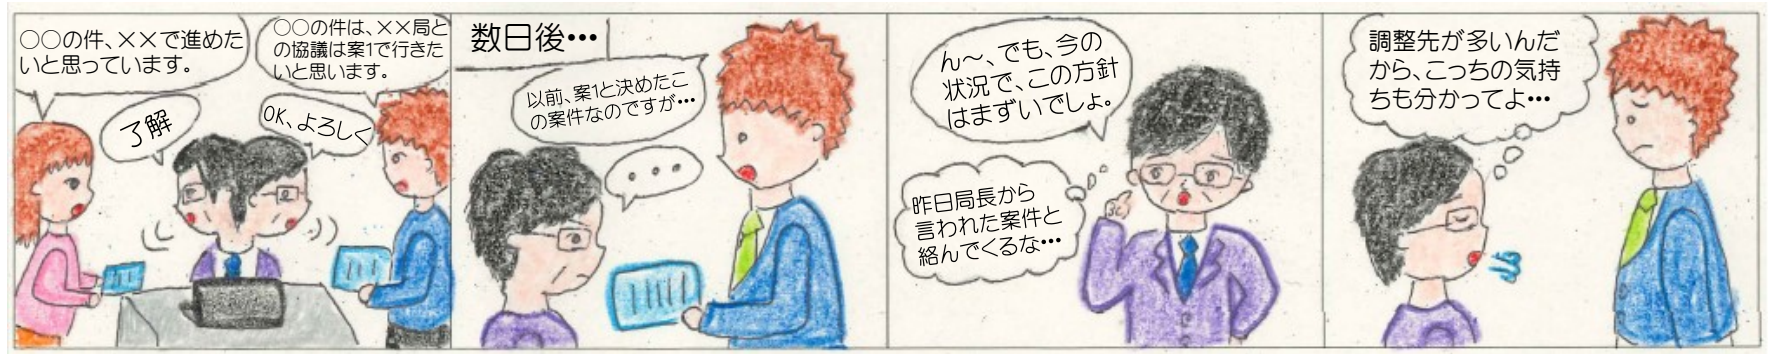 ○○の件、××で進めた
いと思っています。
○○の件は、××局と
の協議は案1で行きた
いと思います。
了解
OK、よろしく
数日後・・・
以前、案1と決めたこ
の案件なのですが・・・
・・・
ん～、でも、今の
状況で、この方針
はまずいでしょ。
昨日局長から
言われた案件と
絡んでくるな・・・
調整先が多いんだ
から、こっちの気持
ちも分かってよ・・・